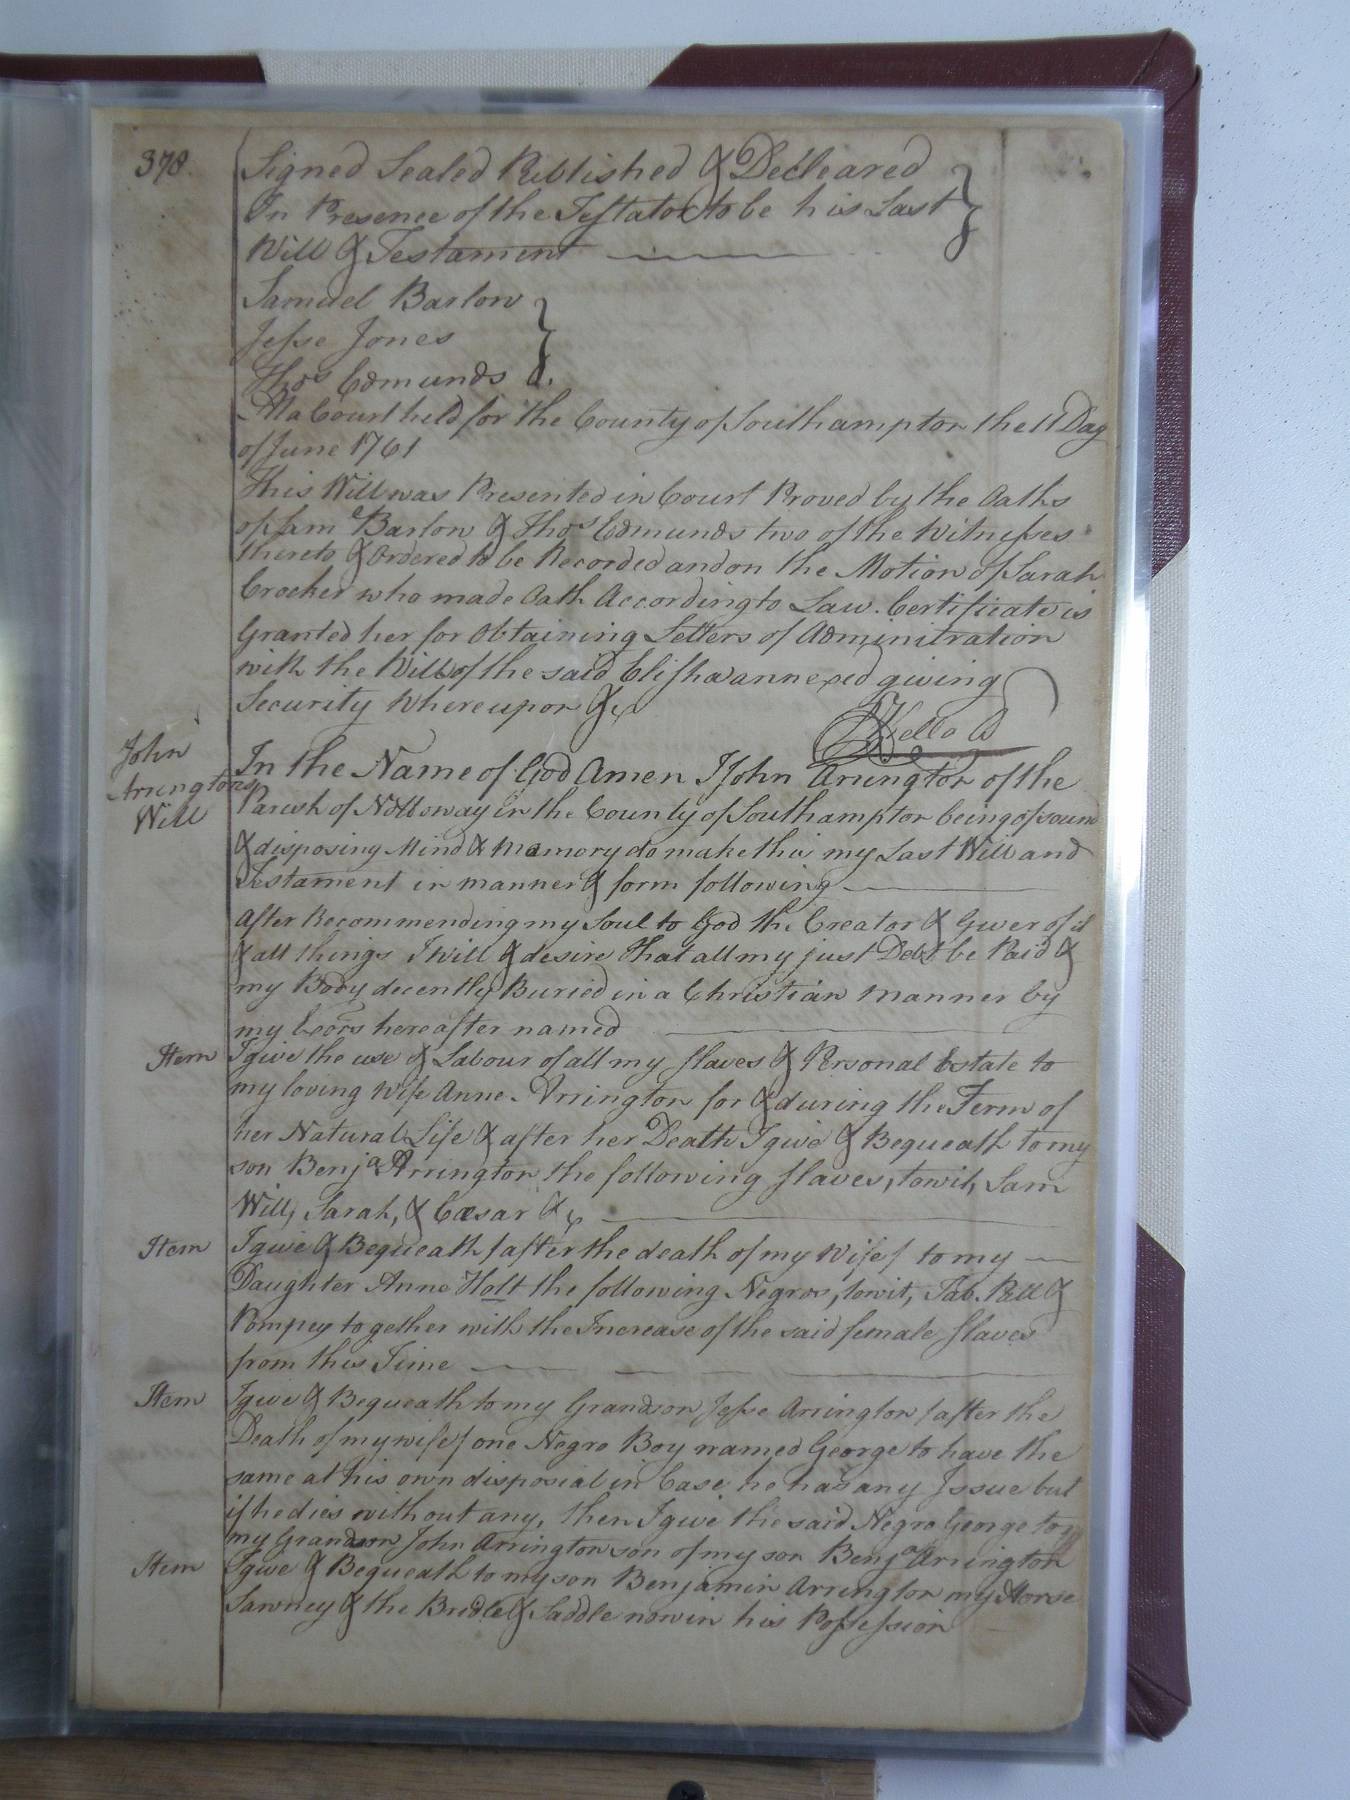 378.
Signed Sealed Published & Decleared
In Presence of the Testator to be his Last
Will & Testament
Samuel Barlow
Jesse Jones
Thos Edmunds
At a Court held for the County of Southampton the 11 Day
of June 1761
This Will was Presented in Court Proved by the Oaths
of Sam Barlow & Thos Edmunds two of the Witnesses
thereto & Ordered to be Recorded and on the Motion of Sarah
Crocker who made Oath According to Law. Certificate is
Granted her for Obtaining Letters of Adminitration
with the Will of the said Elisha annexed giving
Security Whereupon &c
John
Arringtons
Will
In the Name of God Amen I John Arrington of the
Parish of Nottoway in the County of Southampton being of sound
& disposing Mind & Mamory do make this my Last Will and
Testament in manner & form following
After Recommending my Soul to God the Creator & Giver of it
& all things I will & desire that all my just Debt be Paid &
my Body decently Buried in a Christian manner by
my Exors hereafter named
Item I give the use & Labour of all my slaves & Personal Estate to
my loving Wife Anne Arrington for & during the Term of
her Natural Life & after her Death I give & Bequeath to my
son Benja Arrington the following slaves, towit, Sam
Will, Sarah, & Cæsar &c
Item I give & Bequeath /after the death of my Wife/ to my
Daughter Anne Holt the following Negros, towit, Tab. Pall &
Pompey together with the Increase of the said female slaves
from this Time
Item I give & Bequeath to my Grandson Jesse Arrington /after the
Death of my wife/ one Negro Boy named George to have the
same at his own disposial in Case he has any Issue but
if he dies without any, then I give the said Negro George to
my Grandson John Arrington son of my son Benja Arrington
Item I give & Bequeath to my son Benjamin Arrington my Horse
Sawney & the Bridle & Saddle now in his Possession